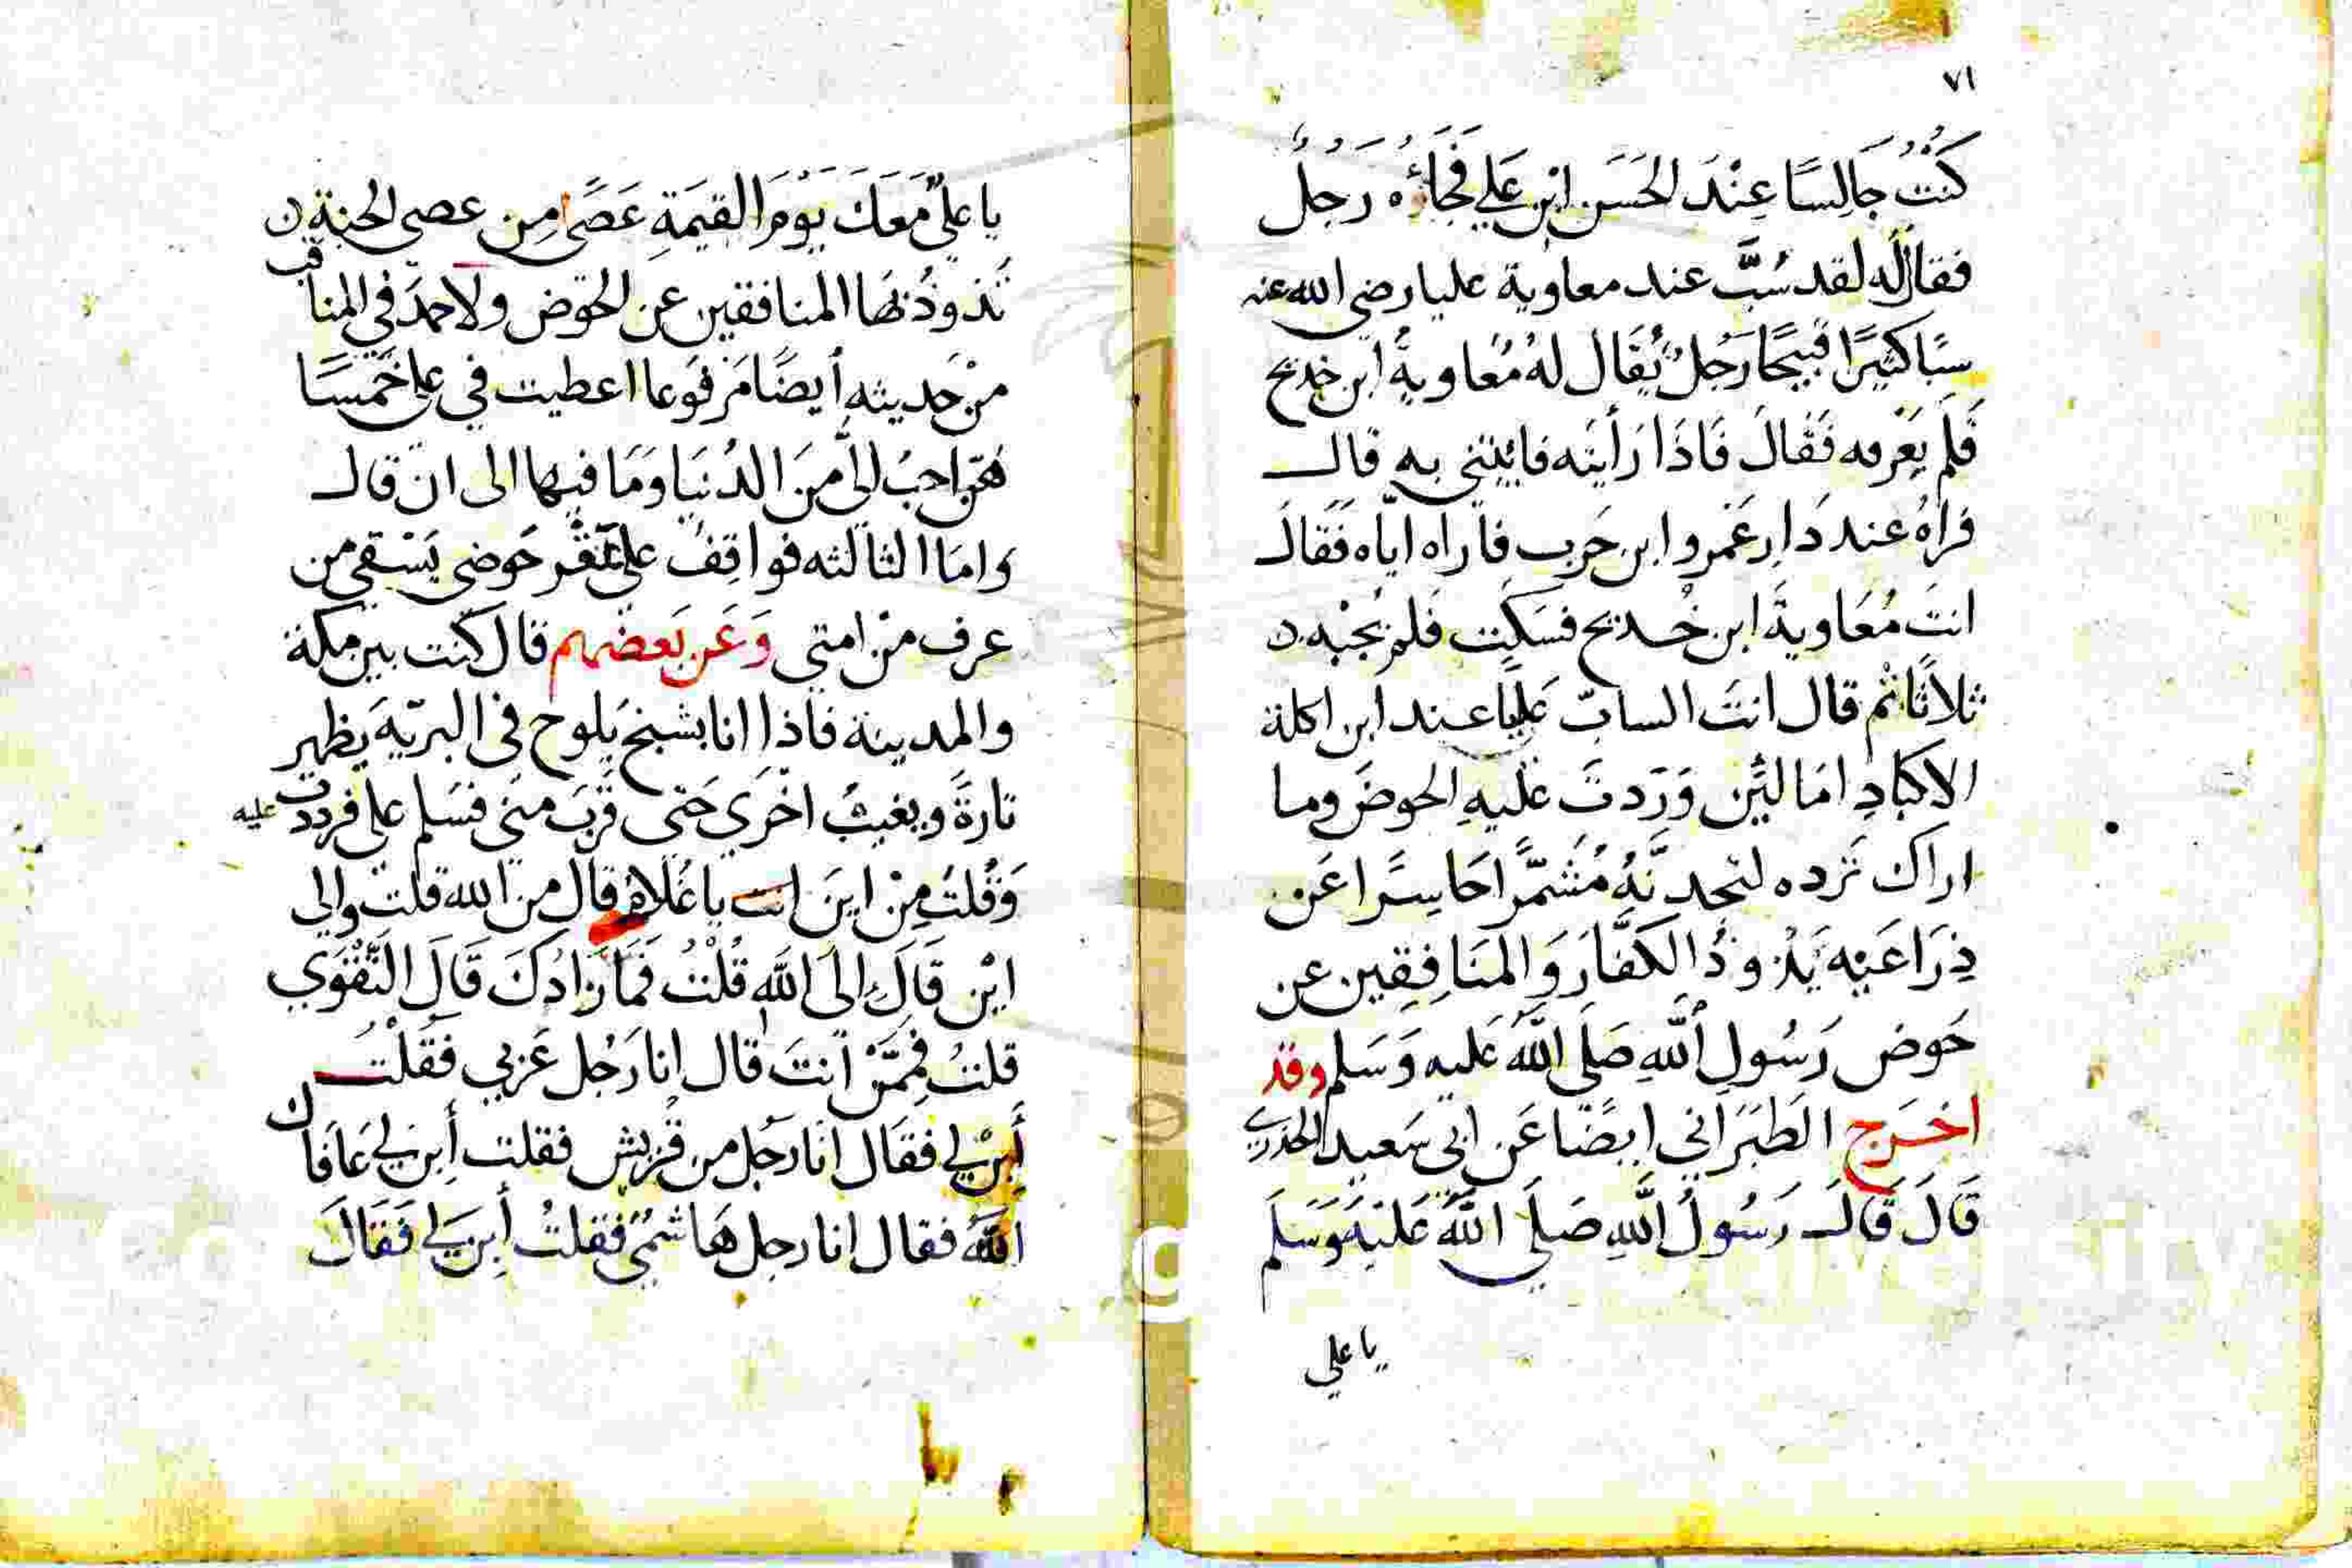 ٧١
كُنْتُ جَالِسًا عِنْدَ الحَسَن ابْن عَلي فَجَاءَهُ رَجُلٌ
فقال له لقد سُبَّ عند معاوية عليا رضي الله عنه
سبًا كثيرًا قبيحًا رَجُلٌ يُقَال لهُ مُعاويةُ ابن خديج
فَلَم يَعْرفه فَقَالَ فَاذَا رَأيته فائتني به قال
فرأهُ عند دَارِ عَمرو ابن حَرب فأراه اياه فَقَالَ
انتَ مُعَاويةَ ابن خُديج فسَكت فلم يجبْه
ثلاثًا ثم قال انتَ السابّ عَليًا عند ابن اكلة
الاكبَادِ امَا لئِن وَرَدتَ عَليهِ الحوضَ وما
اراك تَرده لتجدنَّهُ مُشَمّرًا حَاسِرًا عَن
ذِرَاعَيْه يَذُودُ الكفَّارَ وَالمنَافِقِين عن
حَوض رَسُولِ اللهِ صَلَى اللهُ عَليه وَسَلم وقد
اخرَج الطَبَرَاني ايضًا عَن ابي سَعيد الخدري
قَالَ قَالَ رَسُولُ اللهِ صَلَى اللهُ عَلَيْهِ وَسَلَم
يا علي
يا عليّ مَعَكَ يَوْمَ القيمَةِ عَصًا مِن عصي الجنة
تَذودُ بهَا المنافقين عن الحَوض ولاحمدَ في المناقب
منْ حَديثه أيضًا مَرفوعا اعطيت في علي خَمسًا
هُنّ احبُ اليَّ منَ الدُنيَا وَمَا فيها الى انَ قال
وامَا الثالثه فواقِفٌ على عقر حَوضي يَسْقي من
عرف منْ امتي وَعَن بَعضهم قال كنت بين مكة
والمدينة فاذا انا بشبخ يَلوح في البريّة يظهر
تارةً ويغيبُ اخْرَي حَتى قَرُبَ مني فسَلم علي فرددت عليه
وَقُلتُ مِنْ اينَ انت يا غُلام قال من الله قلت والى
ايْن قَالَ إلىَ اللهِ قُلْتُ فَمَا زَادُكَ قَالَ التَّقْوَي
قلتُ فمِمَّنْ انتَ قال انا رَجُل عَربي فَقلْتُ
أَبِنْ لي فقَال انا رَجُل من قُريش فقلت أَبِن لي عَافاك
اللهُ فقال انا رجل هَاشميٌ فقلتُ أبِن لي فَقَالَ